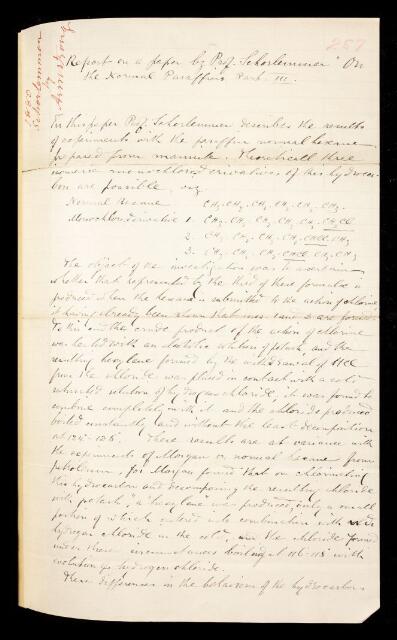 257
Schorlemmer
by
Armstrong
Report on a paper by Prof. Schorlemmer "On
the Normal Paraffins Part III.
In this paper Prof. Schorlemmer describes the results
of experiments with the paraffin normal hexane
prepared from mannite. Theoretically three
isomeric monochlor. derivatives of this hydrocar-
bon are possible, viz
Normal Hexane CH3.CH2.CH2.CH2.CH2.CH3
Monochlor. derivative 1. CH3.CH2.CH2.CH2.CH2.CH2Cl
2. CH3.CH2.CH2.CH2.CHCl.CH3
3. CH3.CH2.CH2.CHCl.CH2.CH3
The object of the investigation was to ascertain
whether that represented by the third of these formulae is
produced when the hexane is submitted to the action of chlorine
it having already been shown that nos. 1 and 2 are formed.
To this end the crude product of the action of chlorine
was heated with an alcoholic solution of potash, and the
resulting hexylene formed by the withdrawal of HCl
from the chloride was placed in contact with a cold
saturated solution of hydrogen chloride, it was found to
combine completely with it and the chloride produced
boiled constantly and without the least decomposition
at 124°-125°. These results are at variance with
the experiments of Morgan on normal hexane from
petroleum, for Morgan found that on chlorinating
this hydrocarbon and decomposing the resulting chloride
with potash, a "hexylene" was produced, only a small
portion of which entered into combination with
hydrogen chloride in the cold, and the chloride formed
under these circumstances boiling at 116-118° with
evolution of hydrogen chloride.
These differences in the behaviour of the hydrocarbons